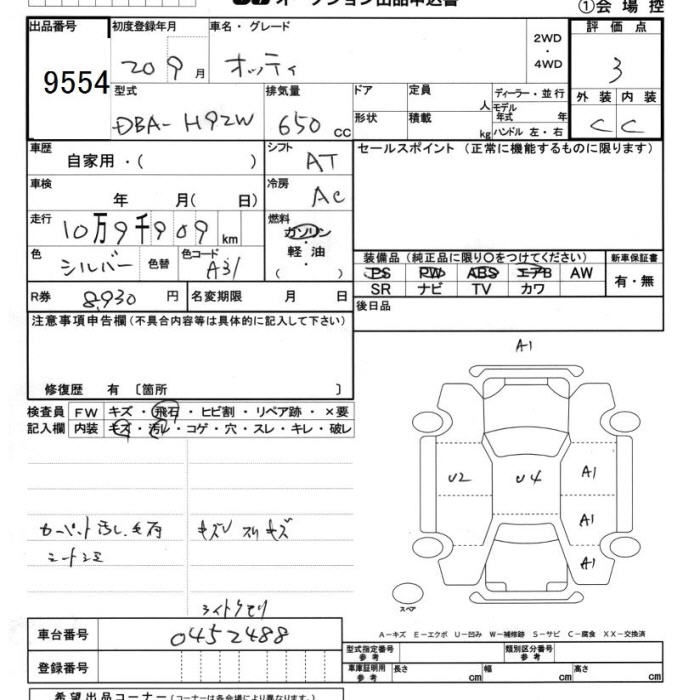 オークション出品申込書
①会場控
出品番号 初度登録年月 車名・グレード 評価点
9554 20 9月 オッティ 2WD・4WD 3
型式 排気量 ドア 定員 人 ディーラー・並行 外装 内装
DBA-H92W 650 cc 形状 積載 kg モデル年式 年 ハンドル 左・右 C C
車歴 自家用・( ) シフト AT セールスポイント (正常に機能するものに限ります)
車検 年 月( 日) 冷房 AC
走行 10万9千909 km 燃料 ガソリン・軽油・( )
色 シルバー 色替 色コード A31 装備品(純正品に限り○をつけてください) 新車保証書
PS PW ABS エアB AW 有・無
SR ナビ TV カワ
R券 8,930 円 名変期限 月 日 後日品
注意事項申告欄(不具合内容等は具体的に記入して下さい)
修復歴 有 〔箇所 〕
A1
検査員 FW キズ・飛石・ヒビ割・リペア跡・×要
記入欄 内装 キズ・汚レ・コゲ・穴・スレ・キレ・破レ
U2 U4 A1
A1
A1
カーペット汚レ
キズU スリキズ
ライトクモリ
スペア
A-キズ E-エクボ U-凹み W-補修跡 S-サビ C-腐食 XX-交換済
車台番号 0452488
型式指定番号 参考 類別区分番号 参考
登録番号 車庫証明用 参考 長さ cm 幅 cm 高さ cm
希望出品コーナー(コーナーは各会場により異なります。)